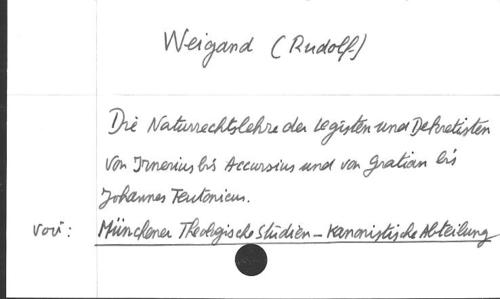 Weigand (Rudolf)
Die Naturrechtslehre der Legisten und Dekretisten
von Irnerius bis Accursius und von Gratian bis
Johannes Teutonicus.
voir: Münchener Theologische Studien – Kanonistische Abteilung